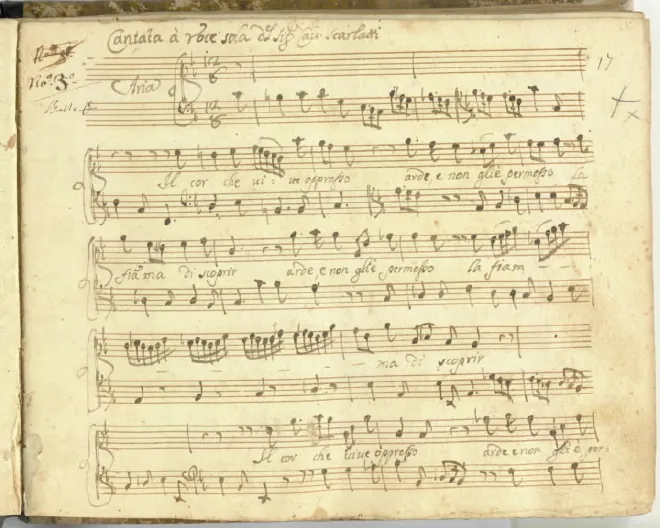 Cantata à voce sola del Sigr Cavr Scarlatti
No. 3o
17
Aria
12
8
12
8
Il cor che vi = ve oppresso arde e non gl'è permesso la
fiāma di scoprir arde e non gl'è permesso la fiam - -
- - - - - ma di scoprir
Il cor che vive oppresso arde e non gl'è per=